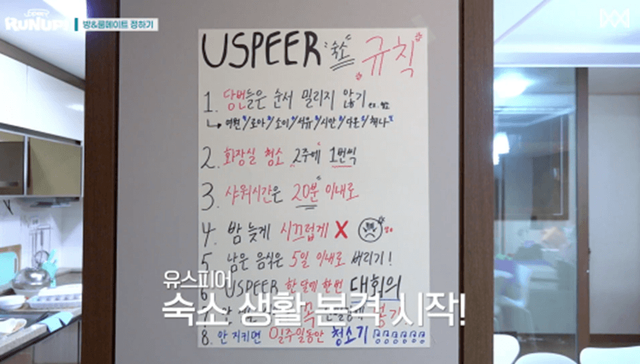 RUNUP!
방&룸메이트 정하기
USPEER 숙소 규칙
1. 당번들은 순서 밀리지 않기
↳ 여원/로아/소이/서유/시안/다온/채나
2. 화장실 청소 2주에 1번씩
3. 샤워시간은 20분 이내로
4. 밤 늦게 시끄럽게 X
5. 남은 음식은 5일 이내로 버리기!
유스피어
6. USPEER 한 달에 한번 대회의
숙소 생활 본격 시작!
8. 안 지키면 일주일동안 청소기